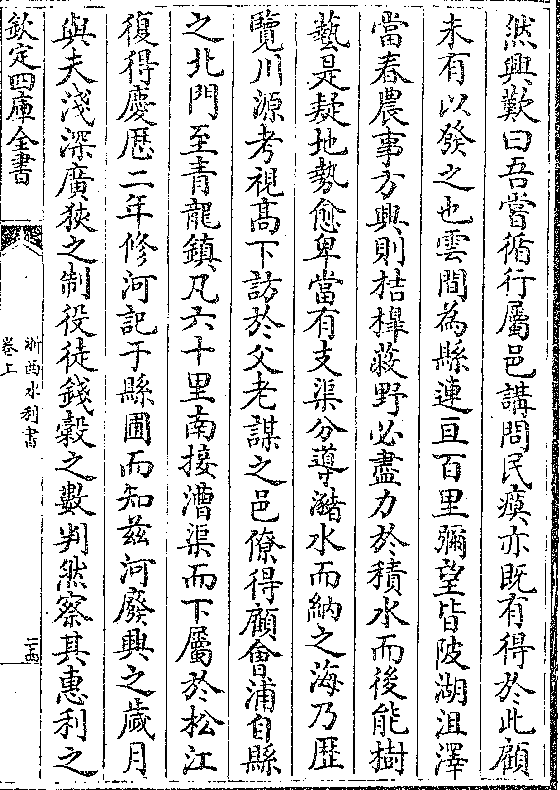 然興歎曰吾嘗循行屬邑講問民瘼亦既有得於此顧
未有以發之也雲間為縣連亘百里彌望皆陂湖沮澤
當春農事方興則桔槹蔽野必盡力於積水而後能樹
藝是疑地勢愈卑當有支渠分導瀦水而納之海乃歴
覽川源考視髙下訪於父老謀之邑僚得顧會浦自縣
之北門至青龍鎮凡六十里南接漕渠而下屬於松江
復得慶厯二年修河記于縣圃而知兹河廢興之歲月
與夫淺深廣狹之制役徒錢穀之數判然察其惠利之
欽定四庫全書
浙西水利書
卷上
二四